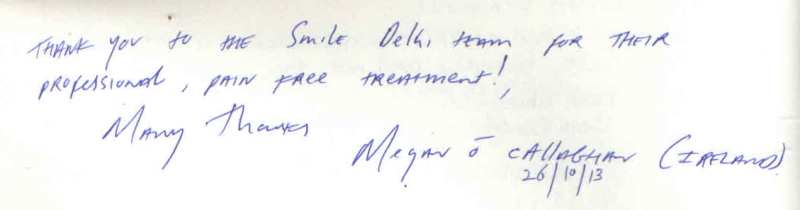 THANK YOU to the Smile Delhi team for THEIR
professional, PAIN FREE treatment!,
Many Thanks
Megan Ó CALLAGHAN (IRELAND)
26/10/13